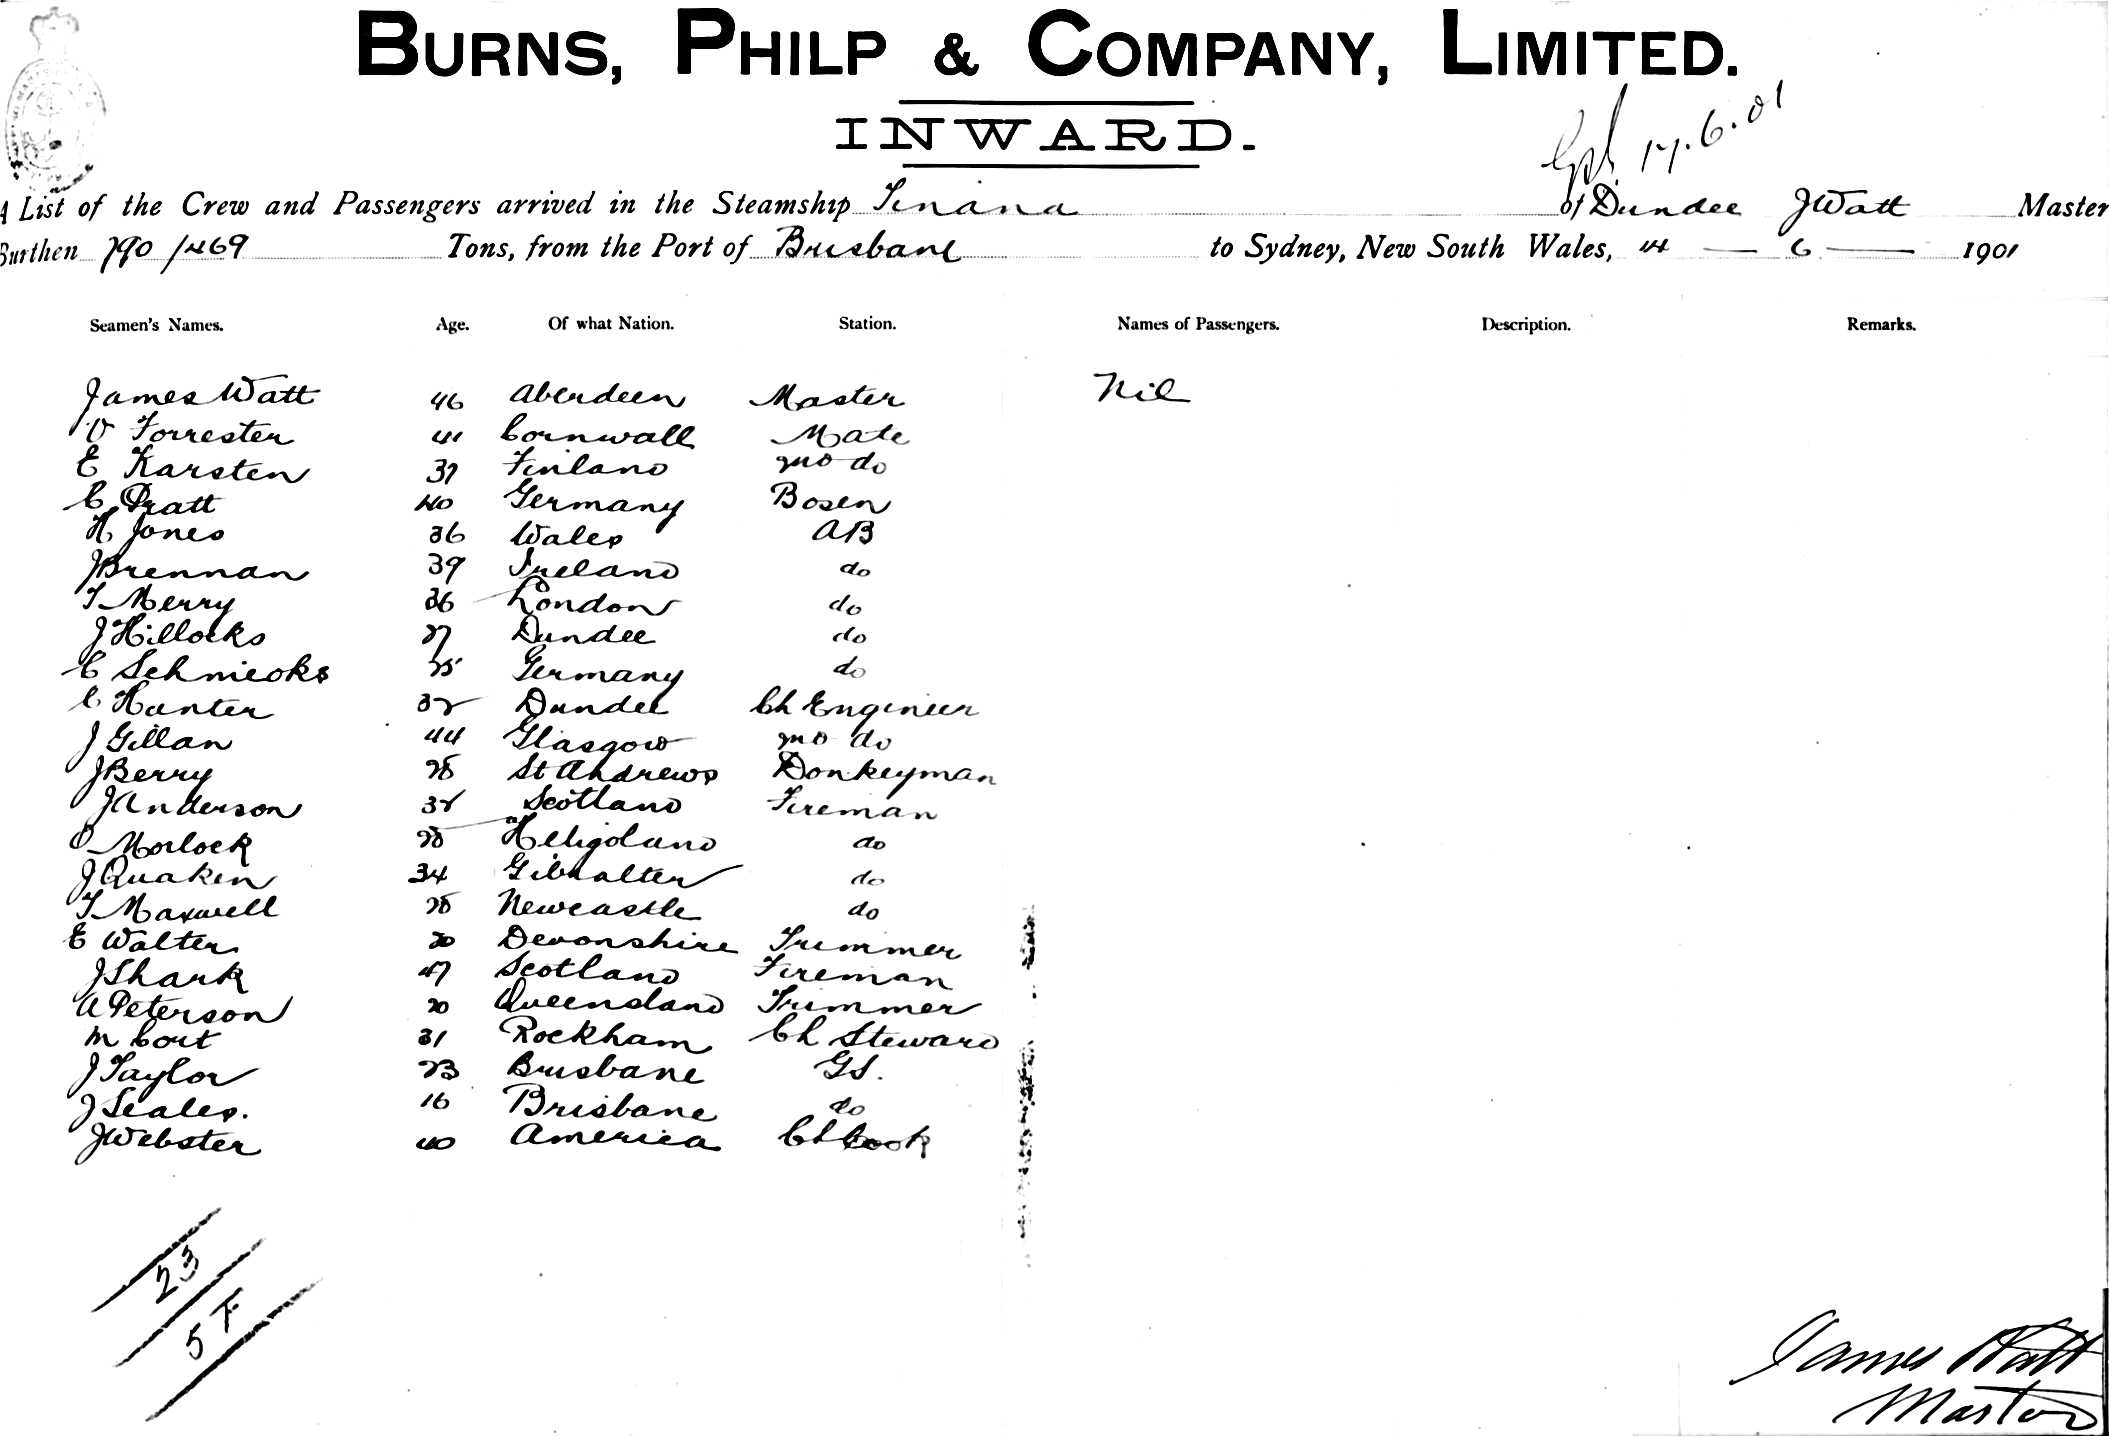 BURNS, PHILP & COMPANY, LIMITED.
INWARD.
17.6.01
A List of the Crew and Passengers arrived in the Steamship Tinana of Dundee J Watt Master
Burthen 790/469 Tons, from the Port of Brisbane to Sydney, New South Wales, 14 — 6 — 1901
Seamen's Names. Age. Of what Nation. Station. Names of Passengers. Description. Remarks.
James Watt 46 Aberdeen Master Nil
Forrester 41 Cornwall Mate
E Karsten 37 Finland 2nd do
C Pratt 40 Germany Bosen
H Jones 36 Wales AB
J Brennan 39 Ireland do
T Merry 36 London do
J Hillocks 27 Dundee do
C 25 Germany do
C Hunter 32 Dundee Ch Engineer
J Gillan 44 Glasgow 2nd do
J Berry 28 St Andrews Donkeyman
J Anderson 32 Scotland Fireman
O Morlock 28 Heligoland do
J Quaken 34 Gibralter do
T Maxwell 28 Newcastle do
E Walter 20 Devonshire Trimmer
J Shark 47 Scotland Fireman
A Peterson 20 Queensland Trimmer
M Cort 31 Rockham Ch Steward
J Taylor 23 Brisbane GS.
J Seales. 16 Brisbane do
J Webster 40 America Ch Cook
23
57
James Watt
Master